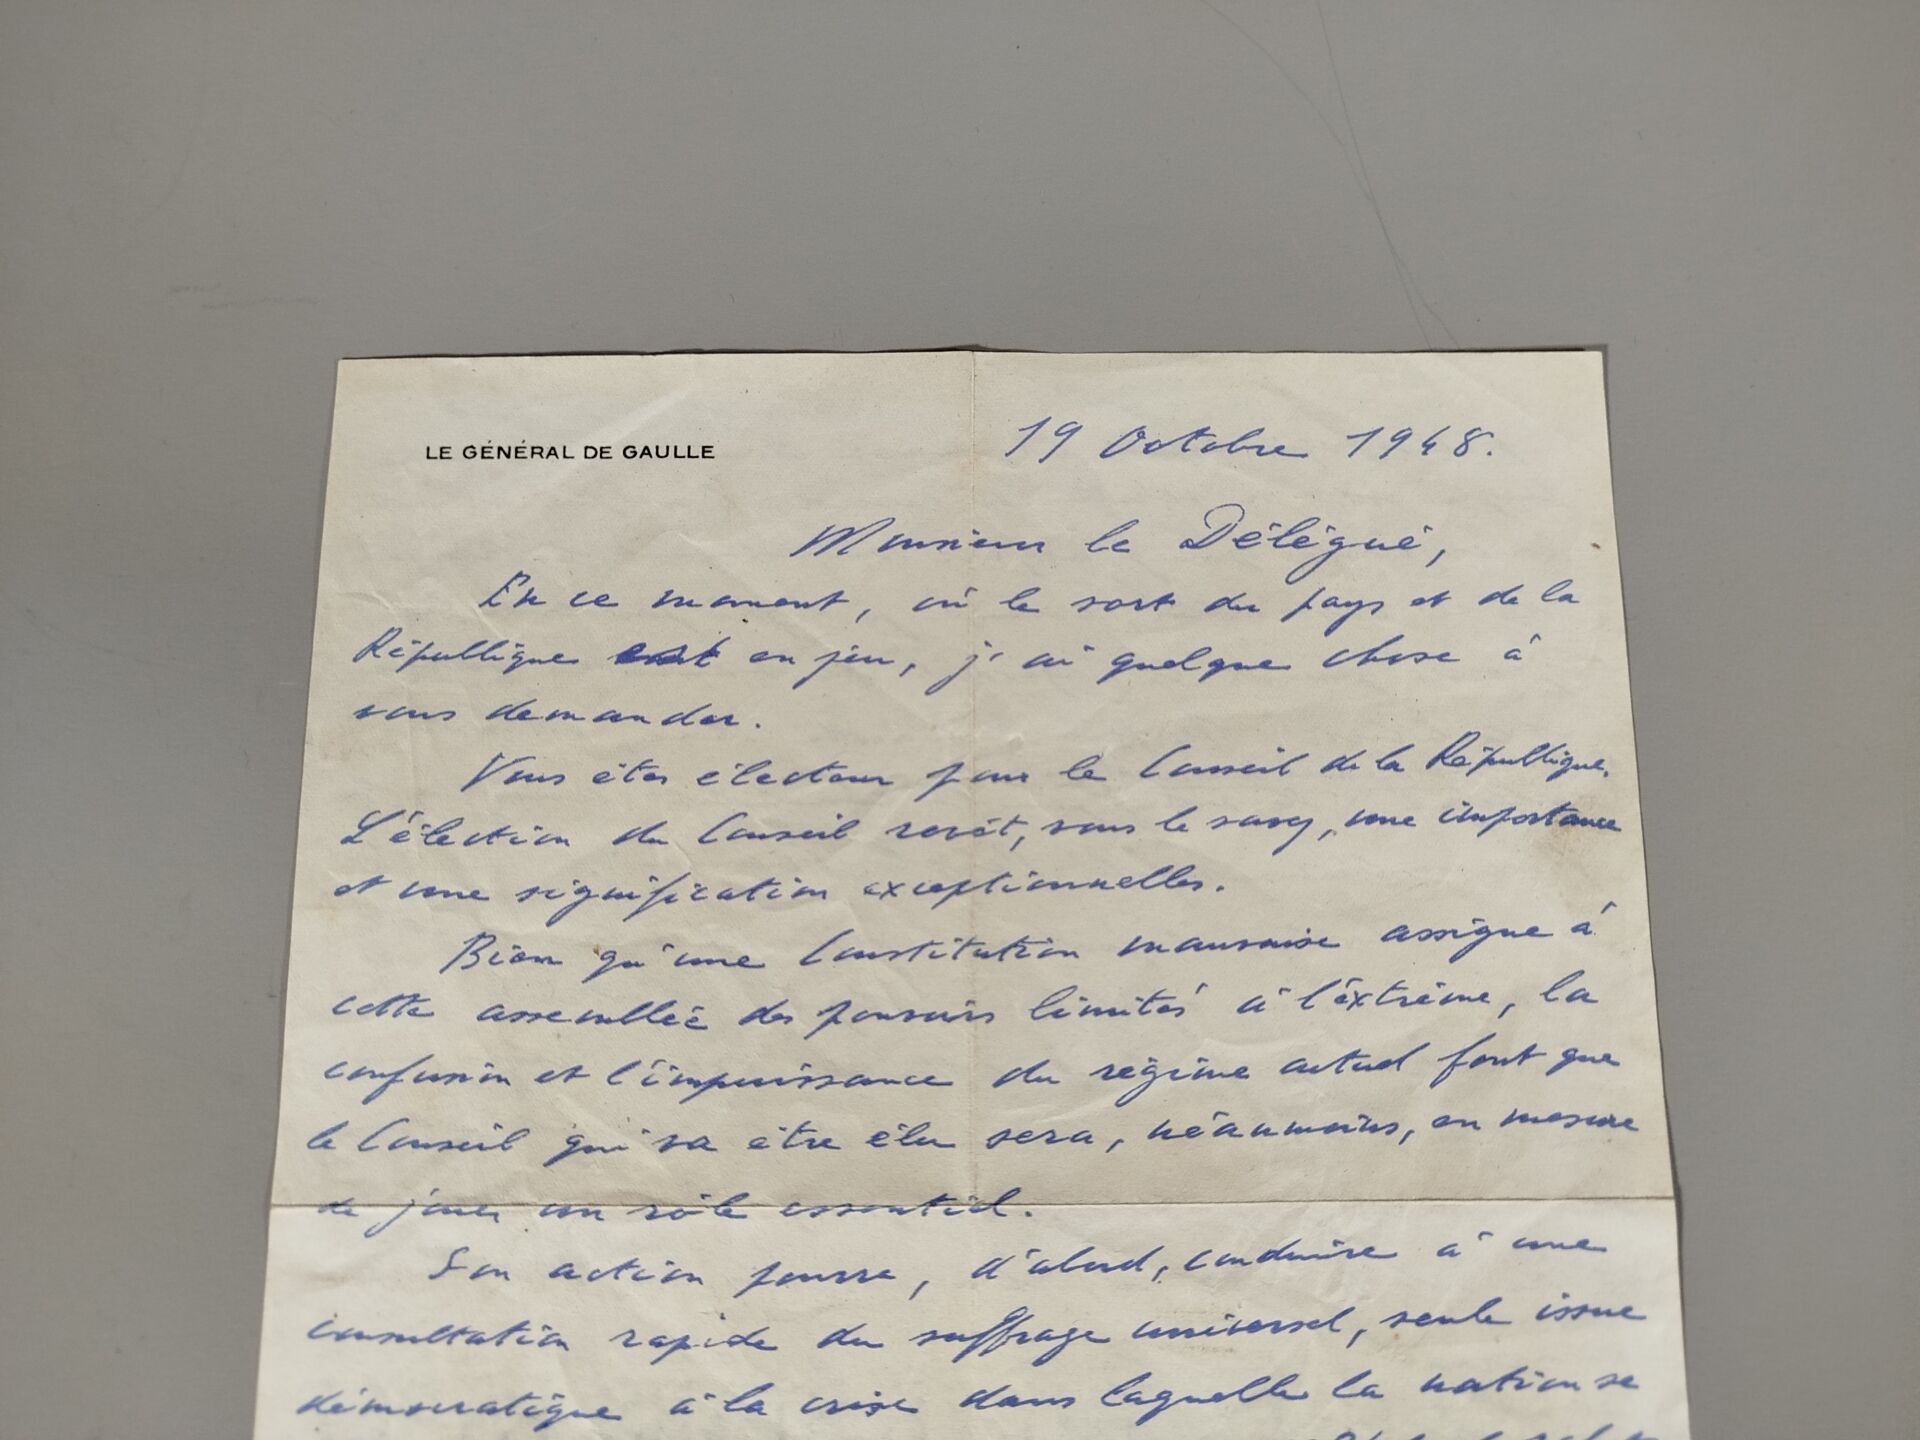 LE GÉNÉRAL DE GAULLE
19 Octobre 1948.
Monsieur le Délégué,
En ce moment, où le sort du pays et de la
République est en jeu, j'ai quelque chose à
vous demander.
Vous êtes électeur pour le Conseil de la République.
L'élection du Conseil revêt, vous le savez, une importance
et une signification exceptionnelles.
Bien qu'une Constitution mauvaise assigne à
cette assemblée des pouvoirs limités à l'éxtrème, la
confusion et l'impuissance du régime actuel font que
le Conseil qui va être élu sera, néanmoins, en mesure
de jouer un rôle essentiel.
Son action pourra, d'abord, conduire à une
consultation rapide du suffrage universel, seule issue
démocratique à la crise dans laquelle la nation se